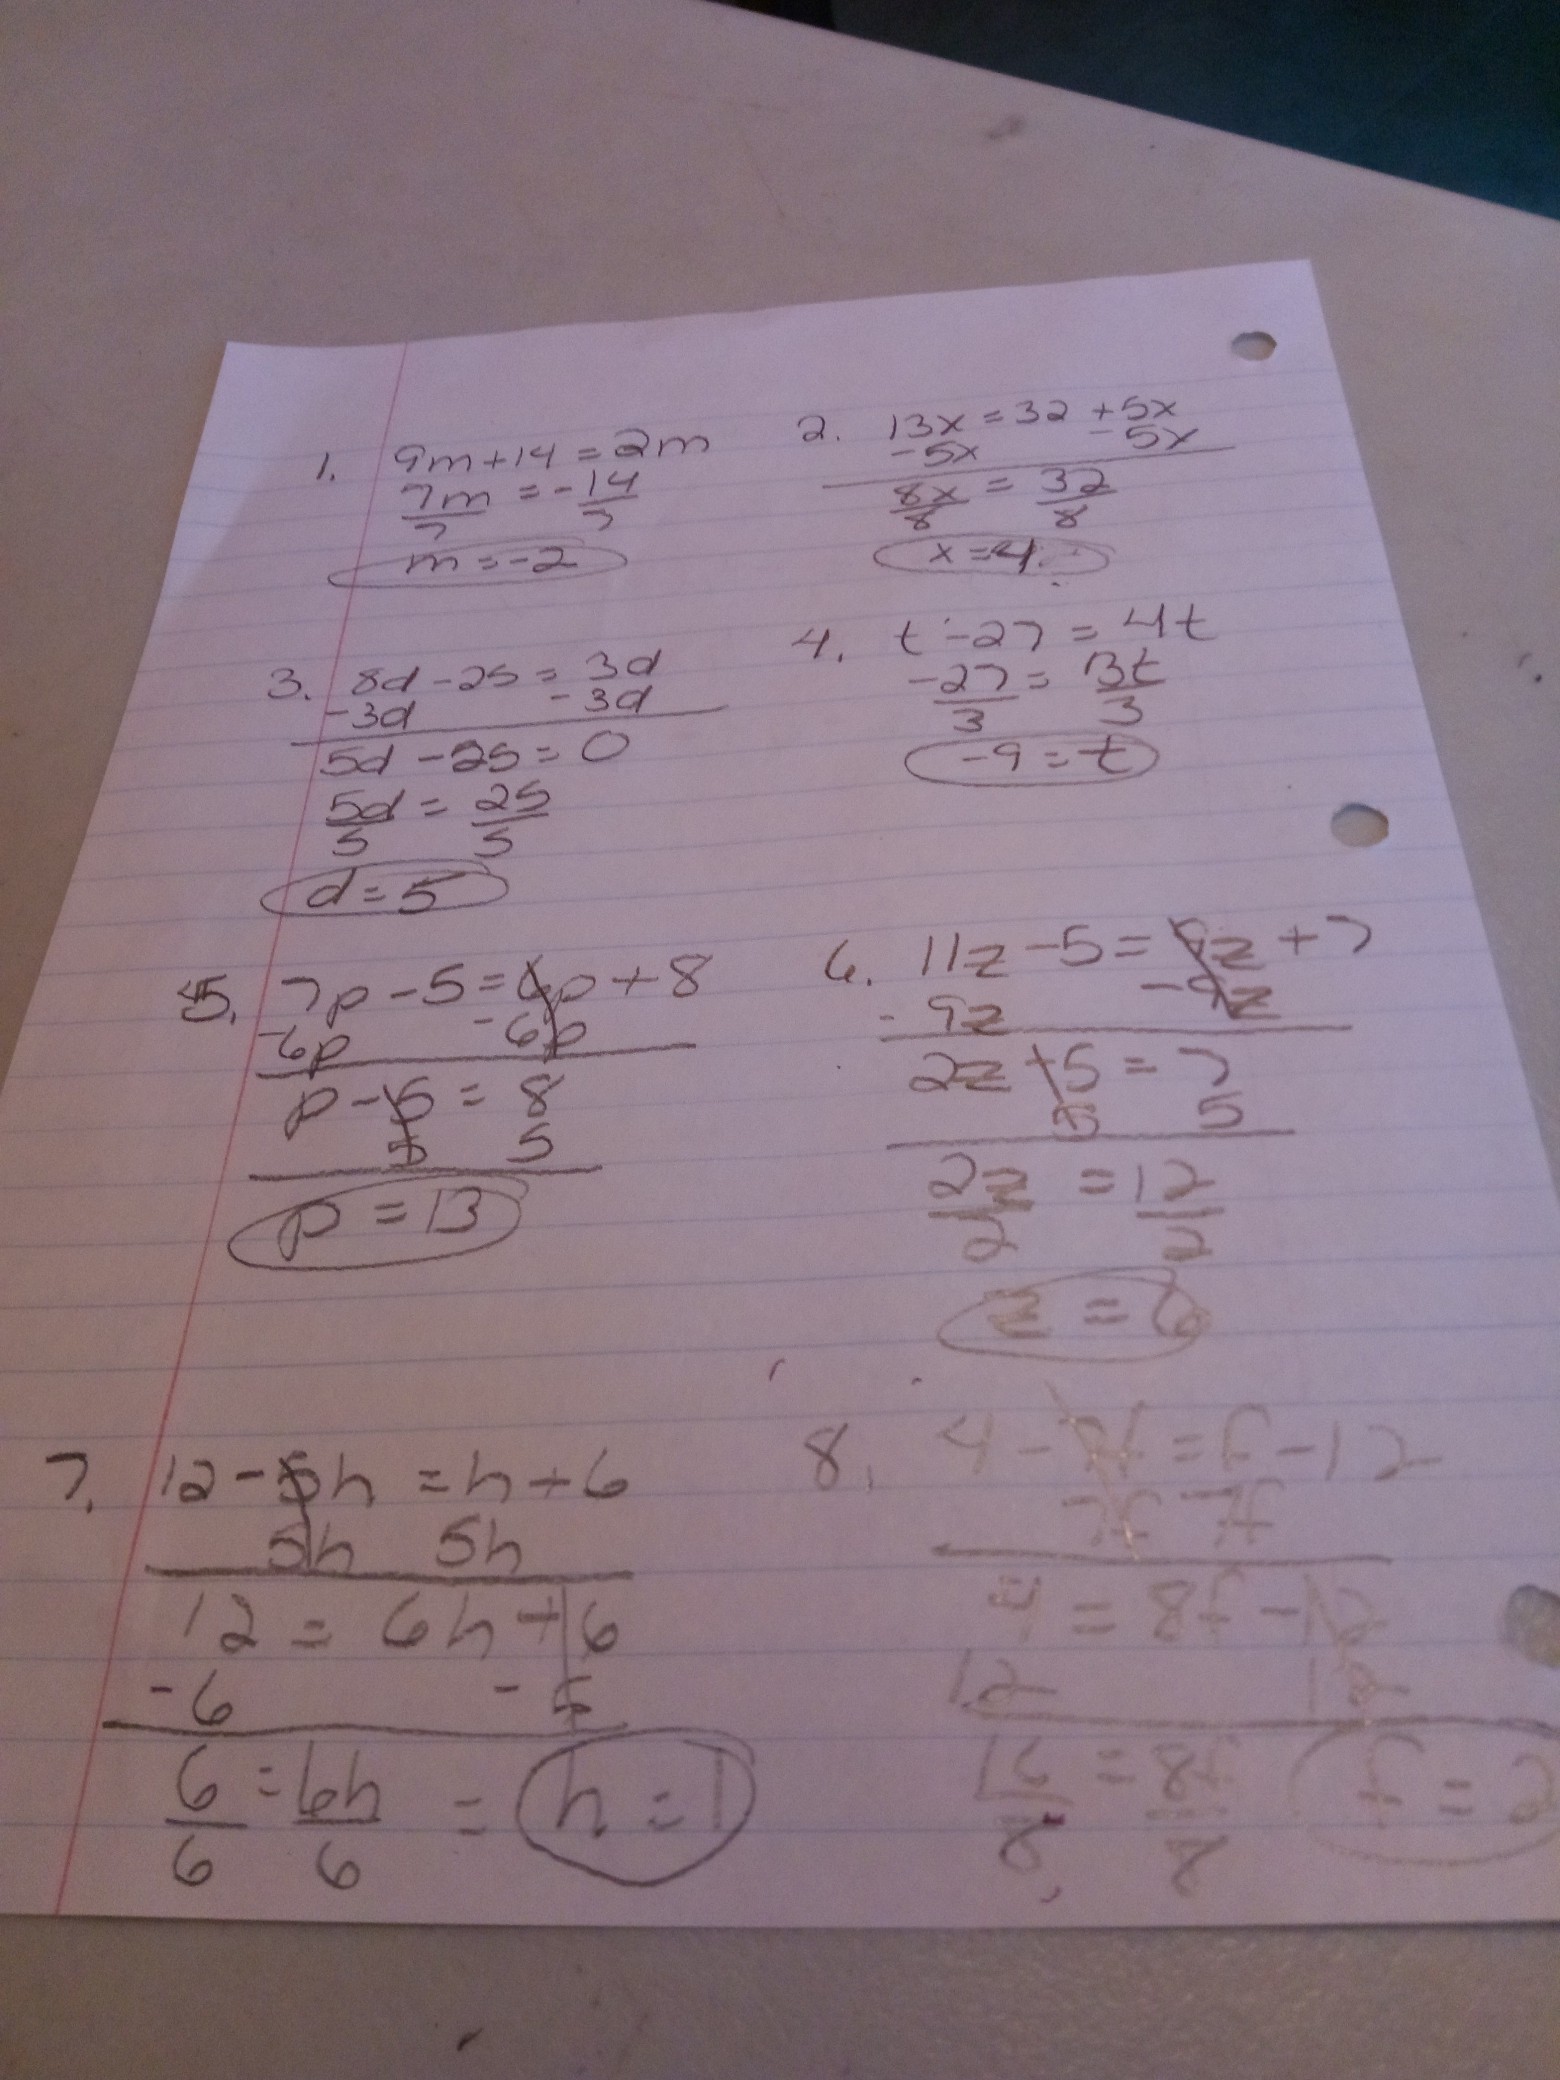 1. 9m+14=2m
7m = -14
7 7
m=-2
2. 13x=32 +5x
-5x -5x
8x = 32
8 8
x=4
3. 8d-25=3d
-3d -3d
5d-25=0
5d = 25
5 5
d=5
4. t -27 = 4t
-27 = 3t
3 3
-9=t
5. 7p-5=6p+8
-6p -6p
p-5=8
5 5
p=13
6. 11z-5=9z+7
-9z -9z
2z+5=7
5 5
2z = 12
2 2
z=6
7. 12-5h=h+6
5h 5h
12=6h+6
-6 -6
6 = 6h = h=1
6 6
8. 4-7f=f-12
7f 7f
4=8f-12
12 12
16 = 8f f=2
8 8